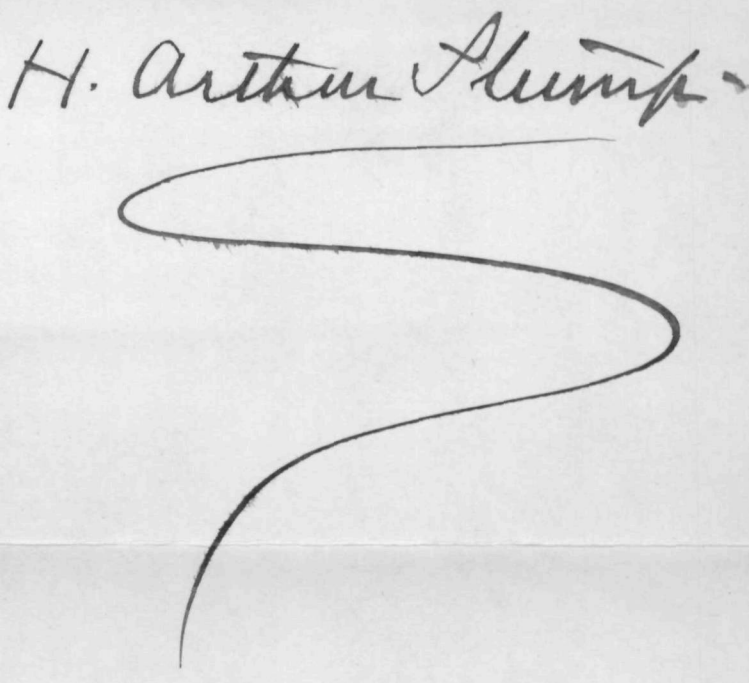 H. Arthur Stump-